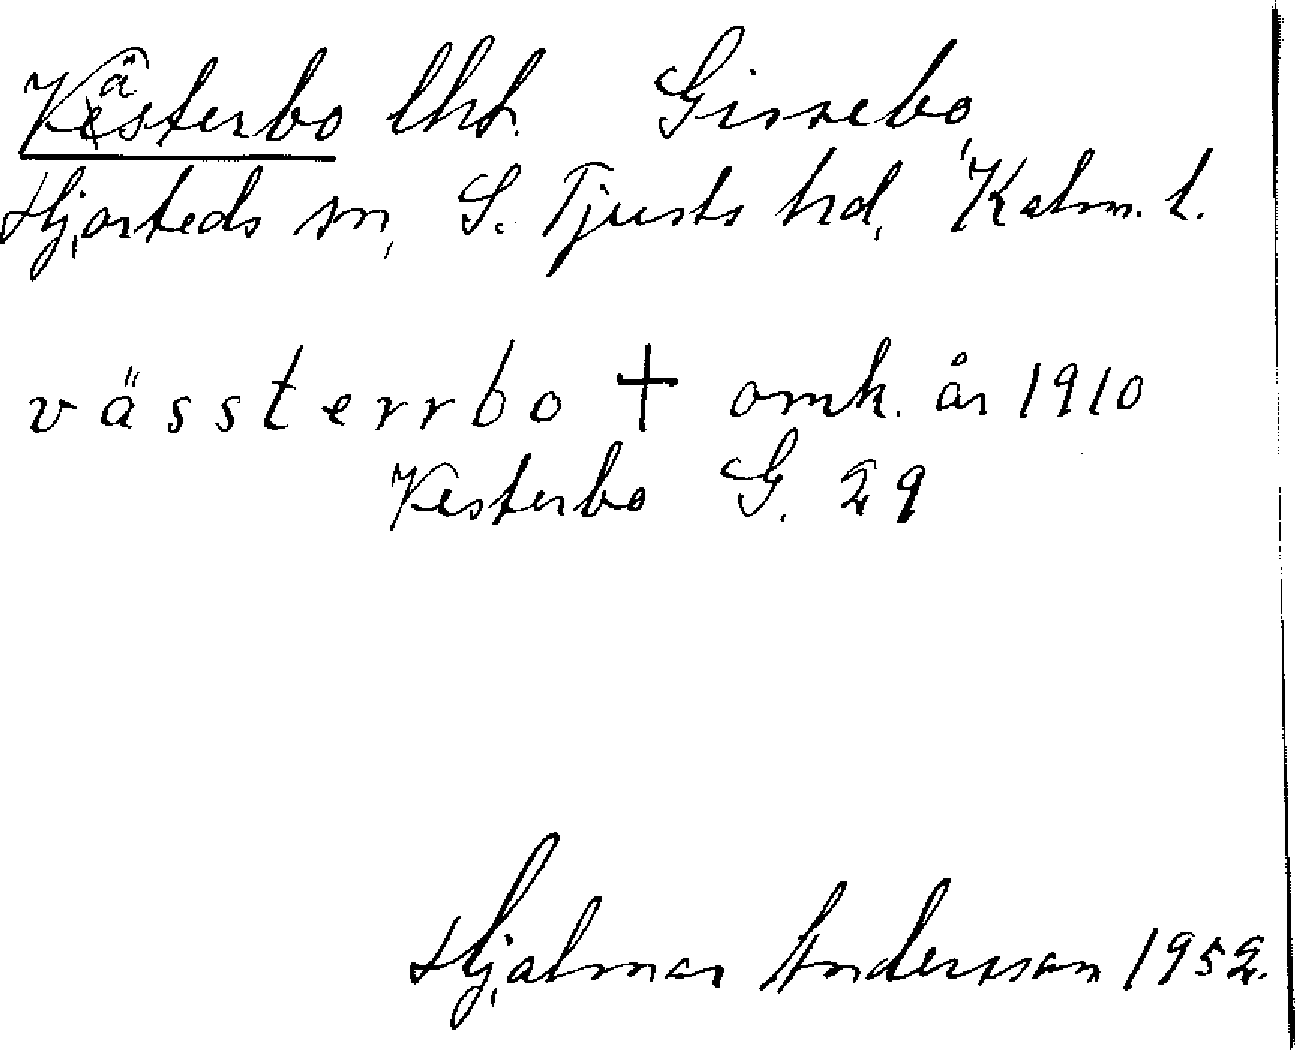 Västerbo lht. Gissebo,
Hjorteds sn, S. Tjusts hd, Kalm. l.
vässterrbo + omk. år 1910
Vesterbo G. 29
Hjalmar Andersson 1952.